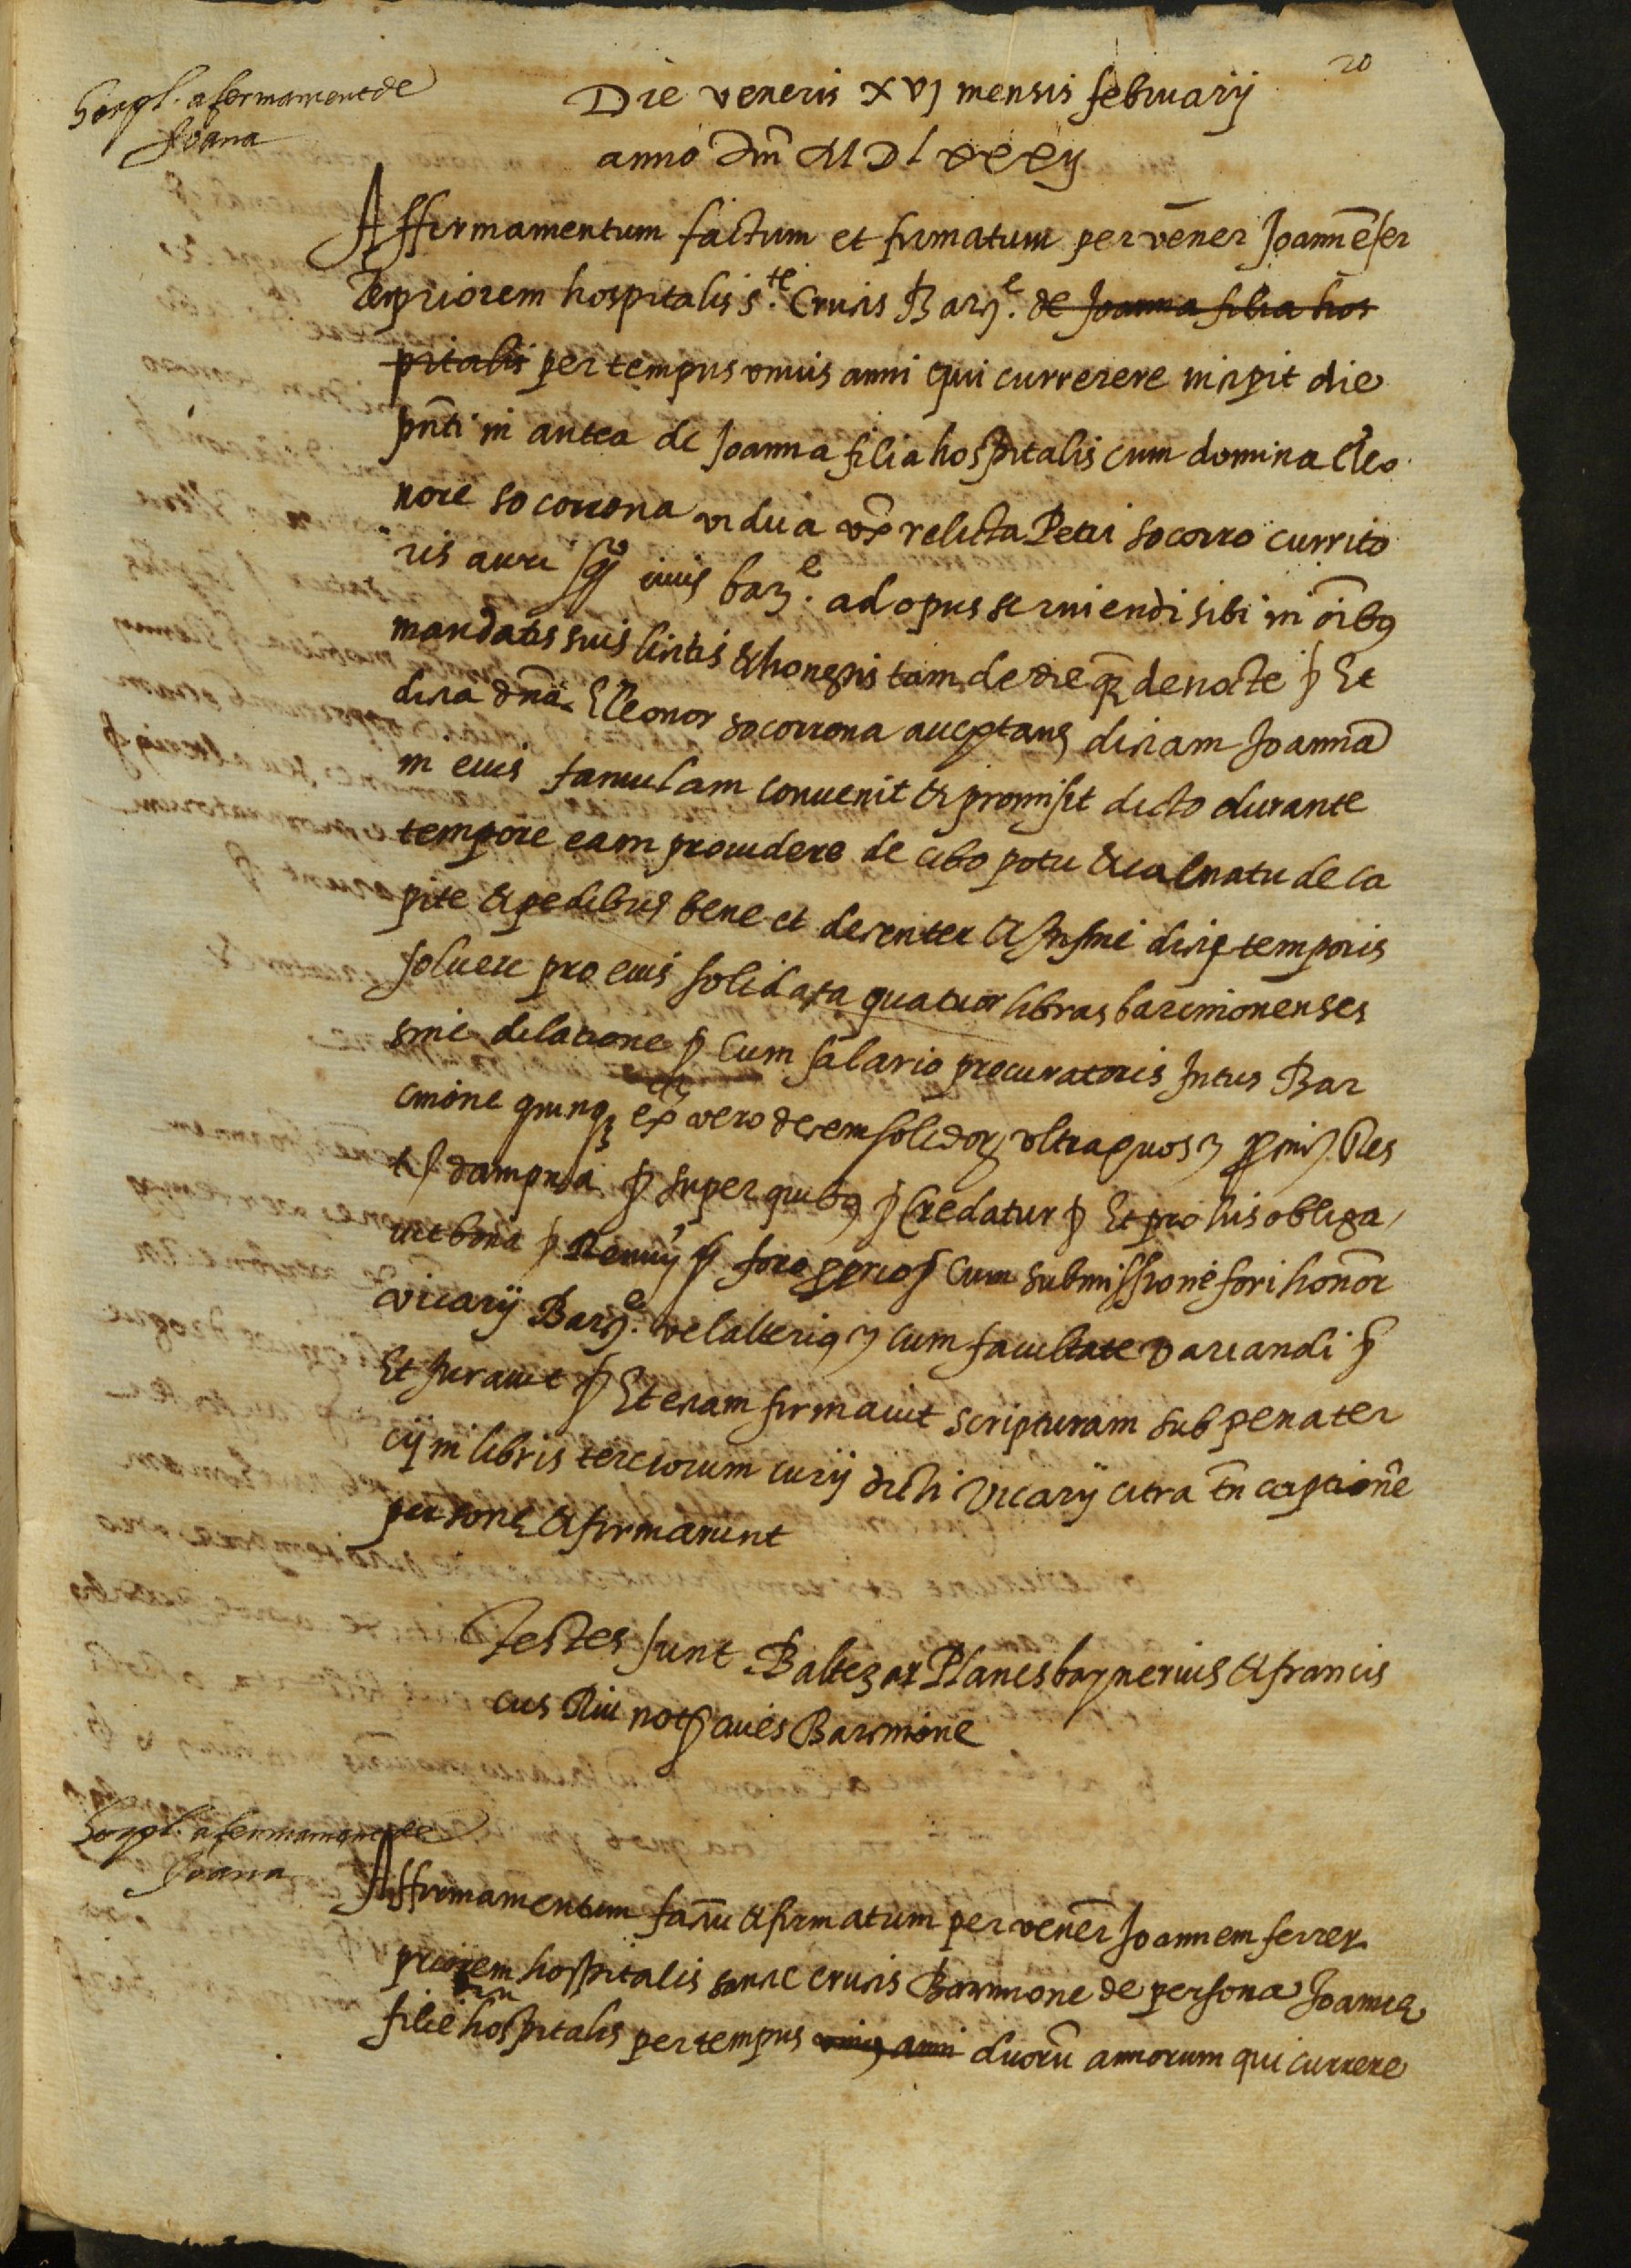 20
Die veneris xvj mensis februarij
anno dm̄ MDlxxxij
afermament de
Joana
Affirmamentum factum et firmatum per vener Joannē fer
rer priorem hospitalis s.te Crucis Barȝ.e de Joanna filia hos
pitalis per tempus vnius anni qui currerere incipit die
pn̄ti in antea de Joanna filia hospitalis cum domina Eleo
nore socorrona vidua vx̄ relicta Petri socorro currito
ris auri ciuis barȝ.e ad opus seruiendi sibi in oībꝫ
mandatis suis licitis & honestis tam de die qȝ de nocte ꝑ Et
dicta dn̄a Elleonor socorrona acceptans dictam Joannā
in eius famulam conuenit & promisit dicto durante
tempore eam prouidere de cibo potu & calciatu de ca
pite & pedibus bene et decenter & in fine dicti temporis
soluere pro eius solidata quatuor libras barcinonenses
sine dilatione ꝑ Cum salario procuratoris Intus Bar
cinone quinqȝ ex̄ vero decem solidoȝ vltra quos ȝ Res
tȝ dampna ꝑ super quibꝫ ꝑ Credatur ꝑ Et pro his obliga
uit bona ꝑ Renuȝ ꝑ foro pprio ꝑ Cum submissione fori honor
vicarij Barȝ.e vel alteriꝫ ȝ cum facultate variandi ꝑ
Et Jurauit ꝑ Et etiam firmauit scripturam sub pena ter
cij in libris terciorum curiȝ dicti Vicarij citra tn̄ captionē
personȩ & firmarunt
Testes sunt Baltezar Planes baynerius & francis
cus Riu notȝ ciues Barcinone
afermament de
Joana
Affirmamentum factū & firmatum per vener̄ Joannem ferrer
priorem hospitalis sancte crucis Barcinone de persona Joannȩ
filie hospitalis per tempus vniꝫ anni duorū annorum qui currere